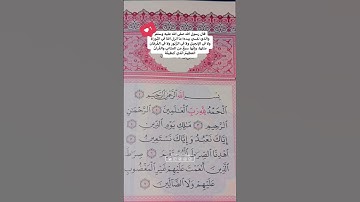 قال رسول الله صلى الله عليه وسلم
والذي نفسي بيده ما أنزل الله في التوراة
ولا في الإنجيل ولا في الزبور ولا في الفرقان
مثلها، وإنها سبع من المثاني والقرآن
العظيم الذي أعطيته
بِسْمِ اللَّهِ الرَّحْمَٰنِ الرَّحِيمِ
الْحَمْدُ لِلَّهِ رَبِّ الْعَالَمِينَ الرَّحْمَٰنِ
الرَّحِيمِ مَالِكِ يَوْمِ الدِّينِ
إِيَّاكَ نَعْبُدُ وَإِيَّاكَ نَسْتَعِينُ
اهْدِنَا الصِّرَاطَ الْمُسْتَقِيمَ صِرَاطَ
الَّذِينَ أَنْعَمْتَ عَلَيْهِمْ غَيْرِ الْمَغْضُوبِ
عَلَيْهِمْ وَلَا الضَّالِّينَ